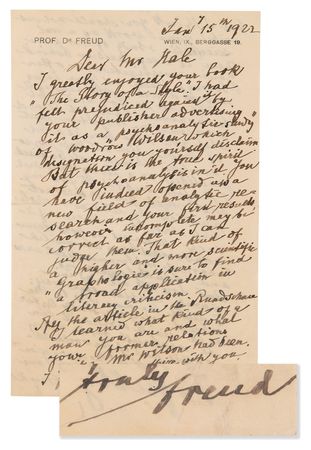 PROF. Dr FREUD
WIEN, IX., BERGGASSE 19.
Jany 15th 1922
Dear Mr Hale
I greatly enjoyed your book
"The Story of a Style". I had
felt prejudiced against by
your publisher advertising
it as a "psychoanalytic study
of Woodrow Wilson" which
designation you yourself disclaim
But there is the true spirit
of psychoanalysis in it. You
have indeed opened up a
new field of analytic re-
search and your first results
however incomplete may be
correct as far as I can
judge them. That kind of
a higher and more scientific
"graphology" is sure to find
a broad application in
literary criticism.
By the article in the Rundschau
I learned what kind of a
man you are and what
your former relations
Mr Wilson had been.
with you
truly
Freud